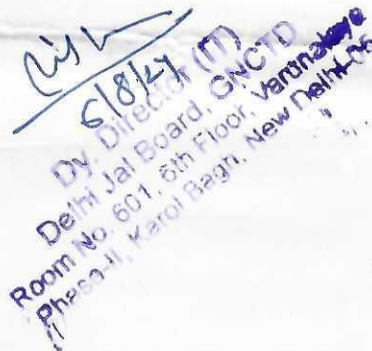 6/8/24
Dy. Director (IT)
Delhi Jal Board, GNCTD
Room No. 601, 6th Floor, Varunalaya
Phase-II, Karol Bagh, New Delhi-05